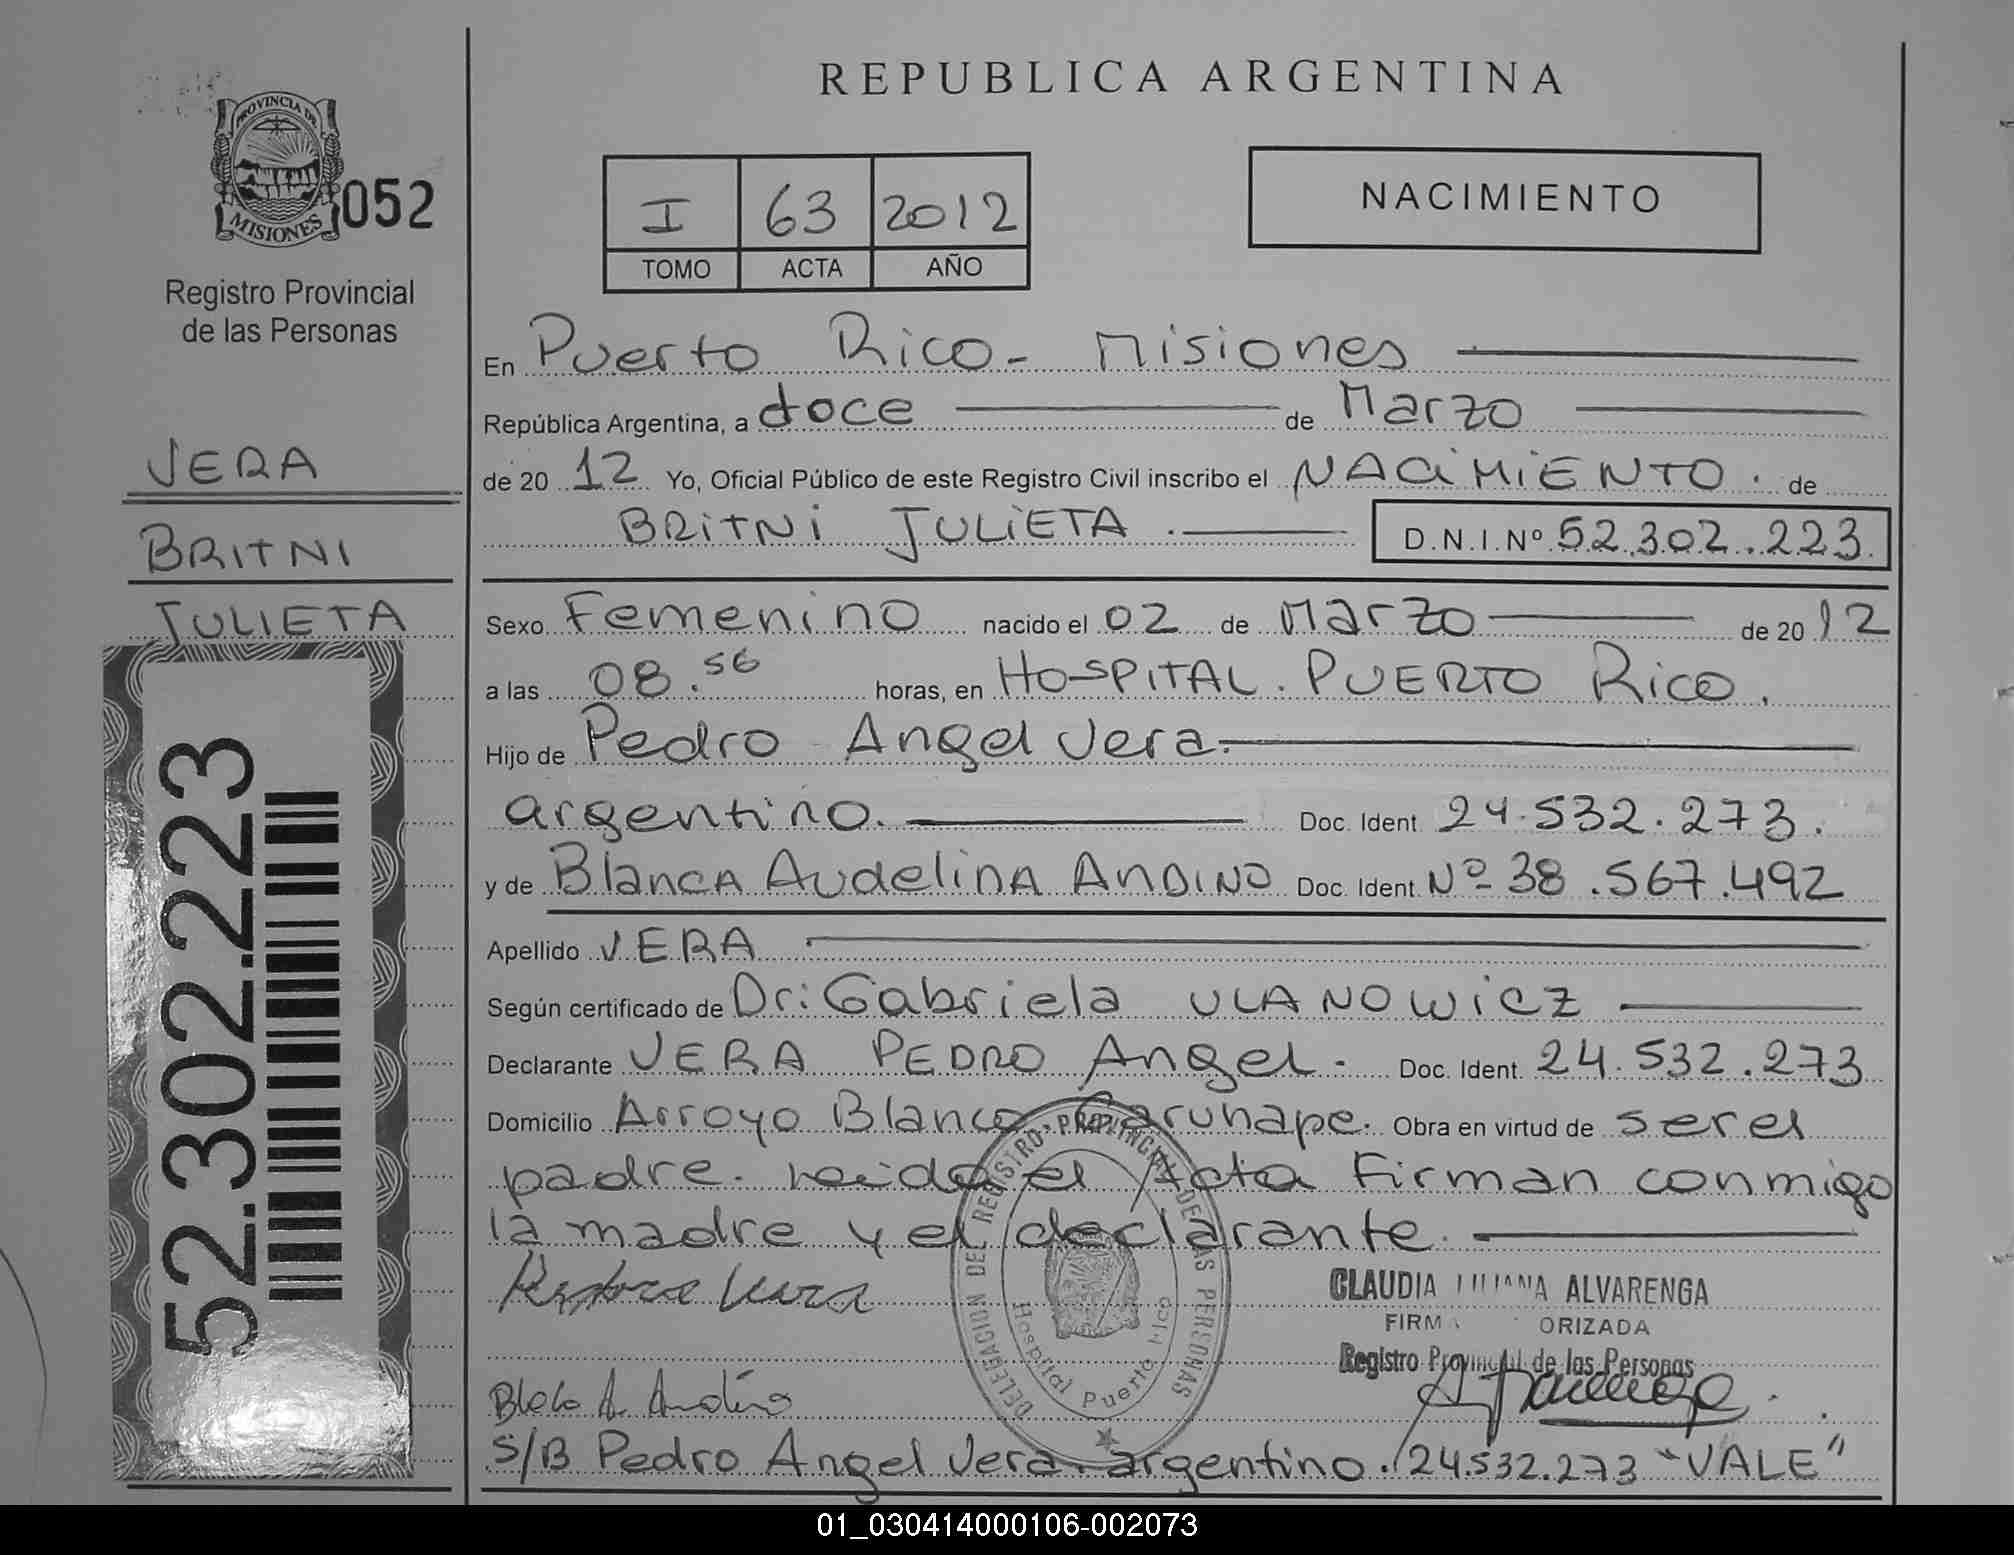 REPUBLICA ARGENTINA
PROVINCIA DE
MISIONES
052
Registro Provincial
de las Personas
VERA
BRITNI
JULIETA
52.302.223
I 63 2012
TOMO ACTA AÑO
NACIMIENTO
En Puerto Rico - Misiones
República Argentina, a doce de Marzo
de 20 12 Yo, Oficial Público de este Registro Civil inscribo el NACIMIENTO. de
BRITNI JULIETA. D.N.I.Nº 52.302.223.
Sexo Femenino nacido el 02 de Marzo de 20 12
a las 08.56 horas, en HOSPITAL. PUERTO RICO.
Hijo de Pedro Angel Vera.
argentino. Doc. Ident. 24.532.273.
y de Blanca Audelina ANDINO Doc. Ident. Nº 38.567.492
Apellido VERA
Según certificado de Dr: Gabriela ULANOWICZ
Declarante VERA PEDRO Angel. Doc. Ident. 24.532.273
Domicilio Arroyo Blanco, Garuhape. Obra en virtud de ser el
padre. el Acta Firman conmigo
la madre y el declarante.
DELEGACION DEL REGISTRO PROVINCIAL DE LAS PERSONAS
Hospital Puerto Rico
CLAUDIA LILIANA ALVARENGA
FIRMA ORIZADA
Registro Provincial de las Personas
S/B Pedro Angel Vera. argentino. 24.532.273 "VALE"
01_030414000106-002073